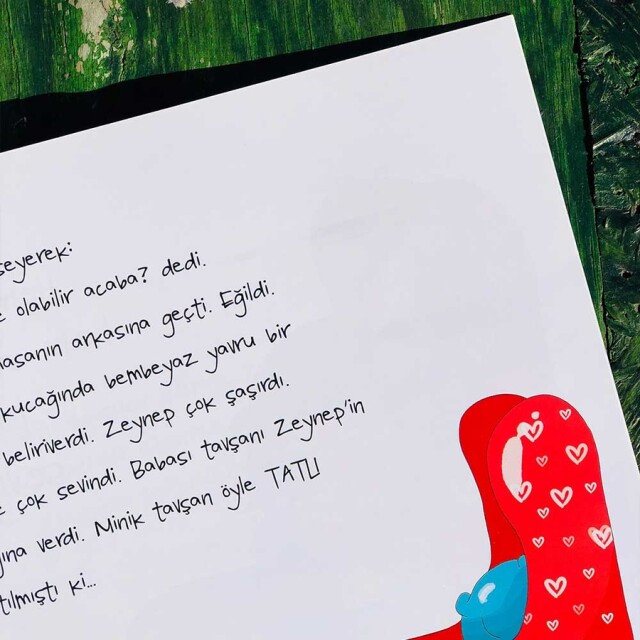 seyerek:
olabilir acaba? dedi.
masanın arkasına geçti. Eğildi.
kucağında bembeyaz yavru bir
beliriverdi. Zeynep çok şaşırdı.
çok sevindi. Babası tavşanı Zeynep'in
ğına verdi. Minik tavşan öyle TATLI
tılmıştı ki...